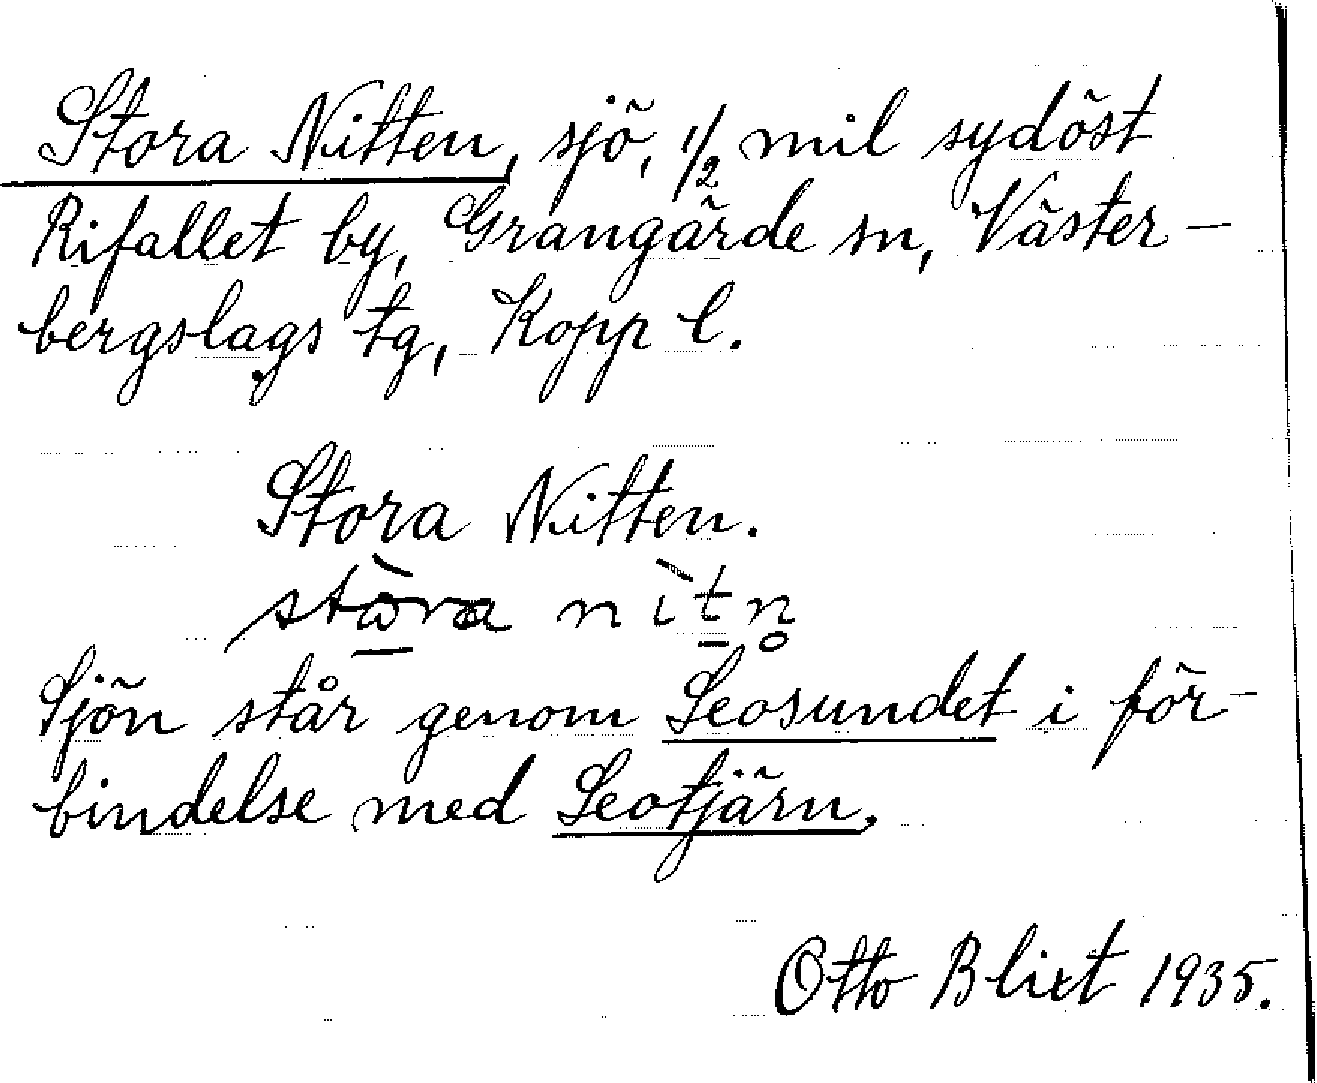 Stora Nitten, sjö, 1/2 mil sydöst
Rifallet by, Grangärde sn, Väster-
bergslags tg, Kopp l.
Stora Nitten.
stò̱ra nìt̠n̥
Sjön står genom Leosundet i för-
bindelse med Leotjärn.
Otto Blixt 1935.